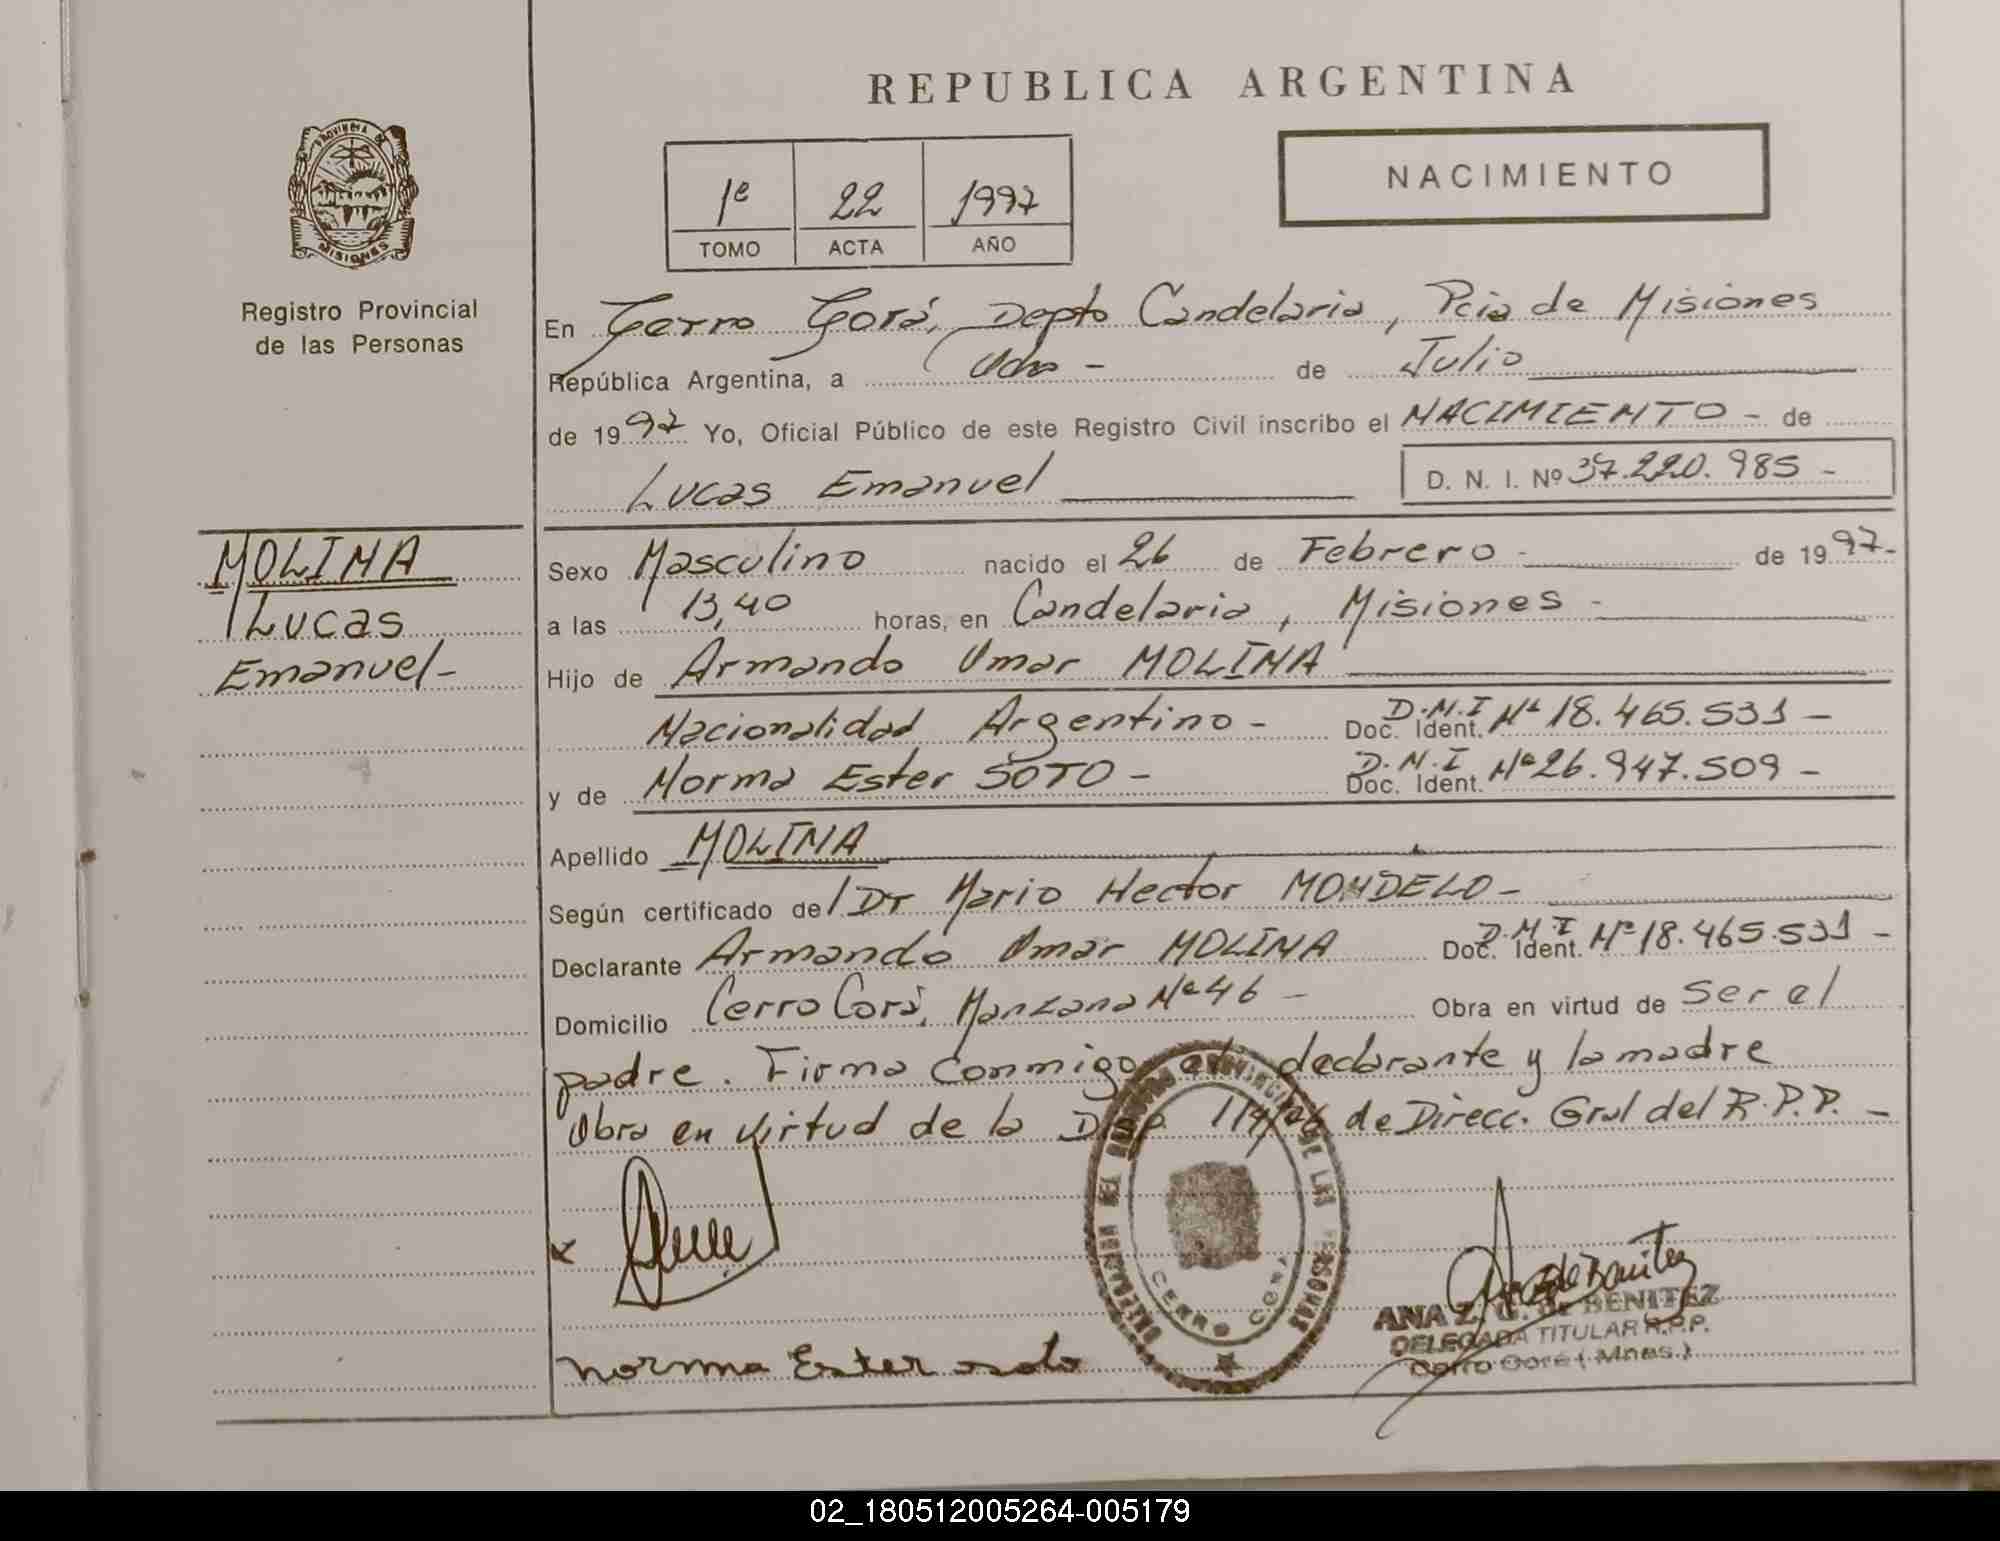 REPUBLICA ARGENTINA
PROVINCIA DE
MISIONES
Registro Provincial
de las Personas
1º 22 1997
TOMO ACTA AÑO
NACIMIENTO
En Cerro Corá, Depto Candelaria, Pcia de Misiones
República Argentina, a Ocho - de Julio
de 1997 Yo, Oficial Público de este Registro Civil inscribo el NACIMIENTO - de
Lucas Emanuel D. N. I. Nº 37.220.985 -
MOLINA
Lucas
Emanuel -
Sexo Masculino nacido el 26 de Febrero - de 1997-
a las 13,40 horas, en Candelaria, Misiones -
Hijo de Armando Omar MOLINA
Nacionalidad Argentino - Doc. Ident. D.N.I Nº 18.465.531 -
y de Norma Ester SOTO - Doc. Ident. D.N.I Nº 26.947.509 -
Apellido MOLINA
Según certificado del Dr Mario Hector MONDELO -
Declarante Armando Omar MOLINA Doc. Ident. D.N.I Nº 18.465.531 -
Domicilio Cerro Corá, Manzana Nº 46 - Obra en virtud de ser el
padre. Firma conmigo el declarante y la madre
Obra en virtud de la Disp. de Direcc. Gral del R.P.P. -
x
norma Ester soto
CERRO CORA
de Benitez
ANA Z. G. de BENITEZ
DELEGADA TITULAR R.P.P.
Cerro Corá (Mnes.)
02_180512005264-005179